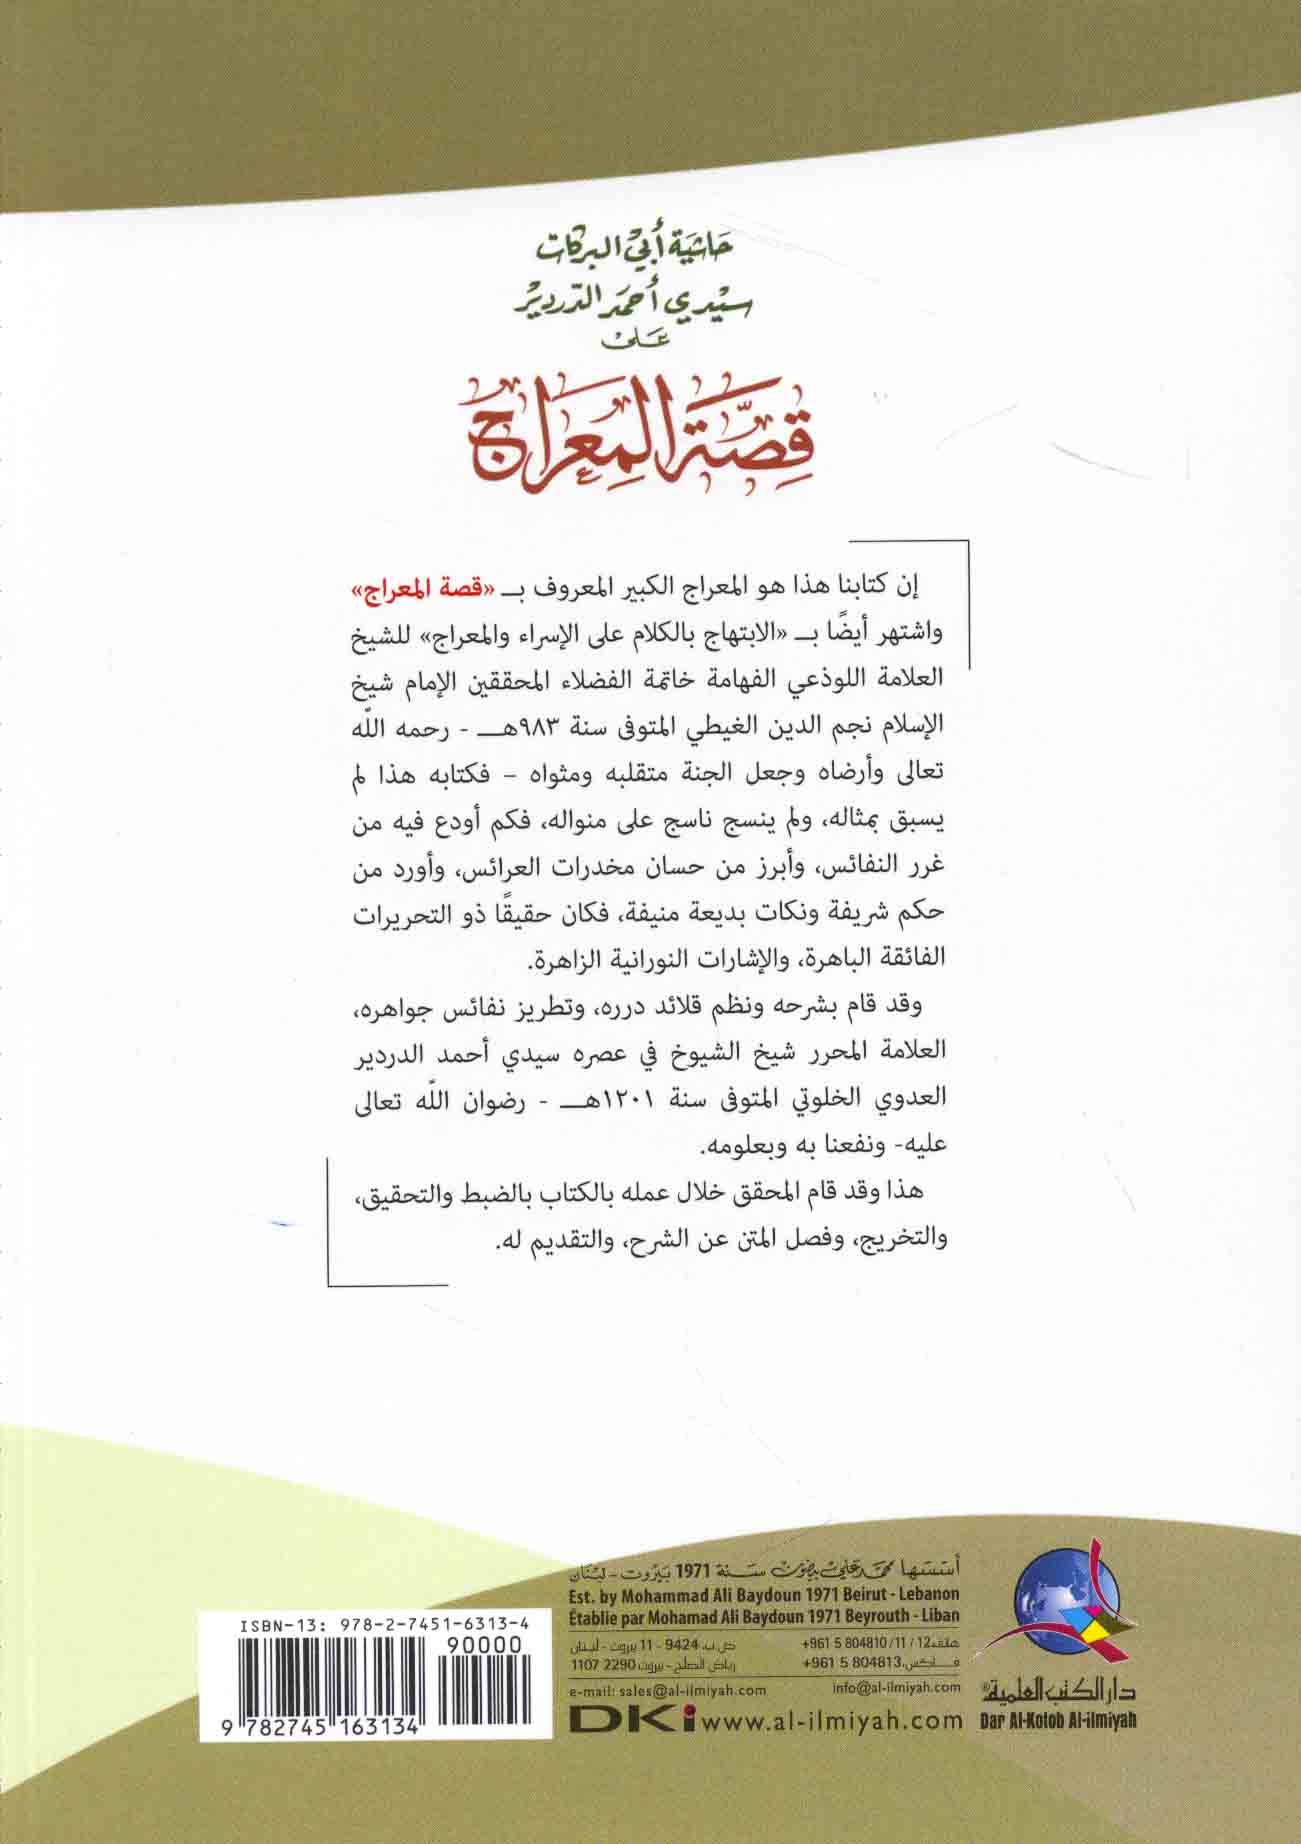 حاشية أبي البركات
سيدي أحمد الدردير
على
قصة المعراج
إن كتابنا هذا هو المعراج الكبير المعروف بـ «قصة المعراج»
واشتهر أيضًا بـ «الابتهاج بالكلام على الإسراء والمعراج» للشيخ
العلامة اللوذعي الفهامة خاتمة الفضلاء المحققين الإمام شيخ
الإسلام نجم الدين الغيطي المتوفى سنة ٩٨٣هـ - رحمه الله
تعالى وأرضاه وجعل الجنة متقلبه ومثواه - فكتابه هذا لم
يسبق بمثاله، ولم ينسج ناسج على منواله، فكم أودع فيه من
غرر النفائس، وأبرز من حسان مخدرات العرائس، وأورد من
حكم شريفة ونكات بديعة منيفة، فكان حقيقًا ذو التحريرات
الفائقة الباهرة، والإشارات النورانية الزاهرة.
وقد قام بشرحه ونظم قلائد درره، وتطريز نفائس جواهره،
العلامة المحرر شيخ الشيوخ في عصره سيدي أحمد الدردير
العدوي الخلوتي المتوفى سنة ١٢٠١هـ - رضوان الله تعالى
عليه- ونفعنا به وبعلومه.
هذا وقد قام المحقق خلال عمله بالكتاب بالضبط والتحقيق،
والتخريج، وفصل المتن عن الشرح، والتقديم له.
أسسها محمد علي بيضون سنة 1971 بيروت - لبنان
Est. by Mohammad Ali Baydoun 1971 Beirut - Lebanon
Établie par Mohamad Ali Baydoun 1971 Beyrouth - Liban
هاتف: +961 5 804810 / 11 / 12
فاكس: +961 5 804813
ص.ب: 9424 - 11 بيروت - لبنان
رياض الصلح - بيروت 2290 1107
e-mail: sales@al-ilmiyah.com
info@al-ilmiyah.com
DKi www.al-ilmiyah.com
دار الكتب العلمية®
Dar Al-Kotob Al-ilmiyah
ISBN-13: 978-2-7451-6313-4
90000
9 782745 163134